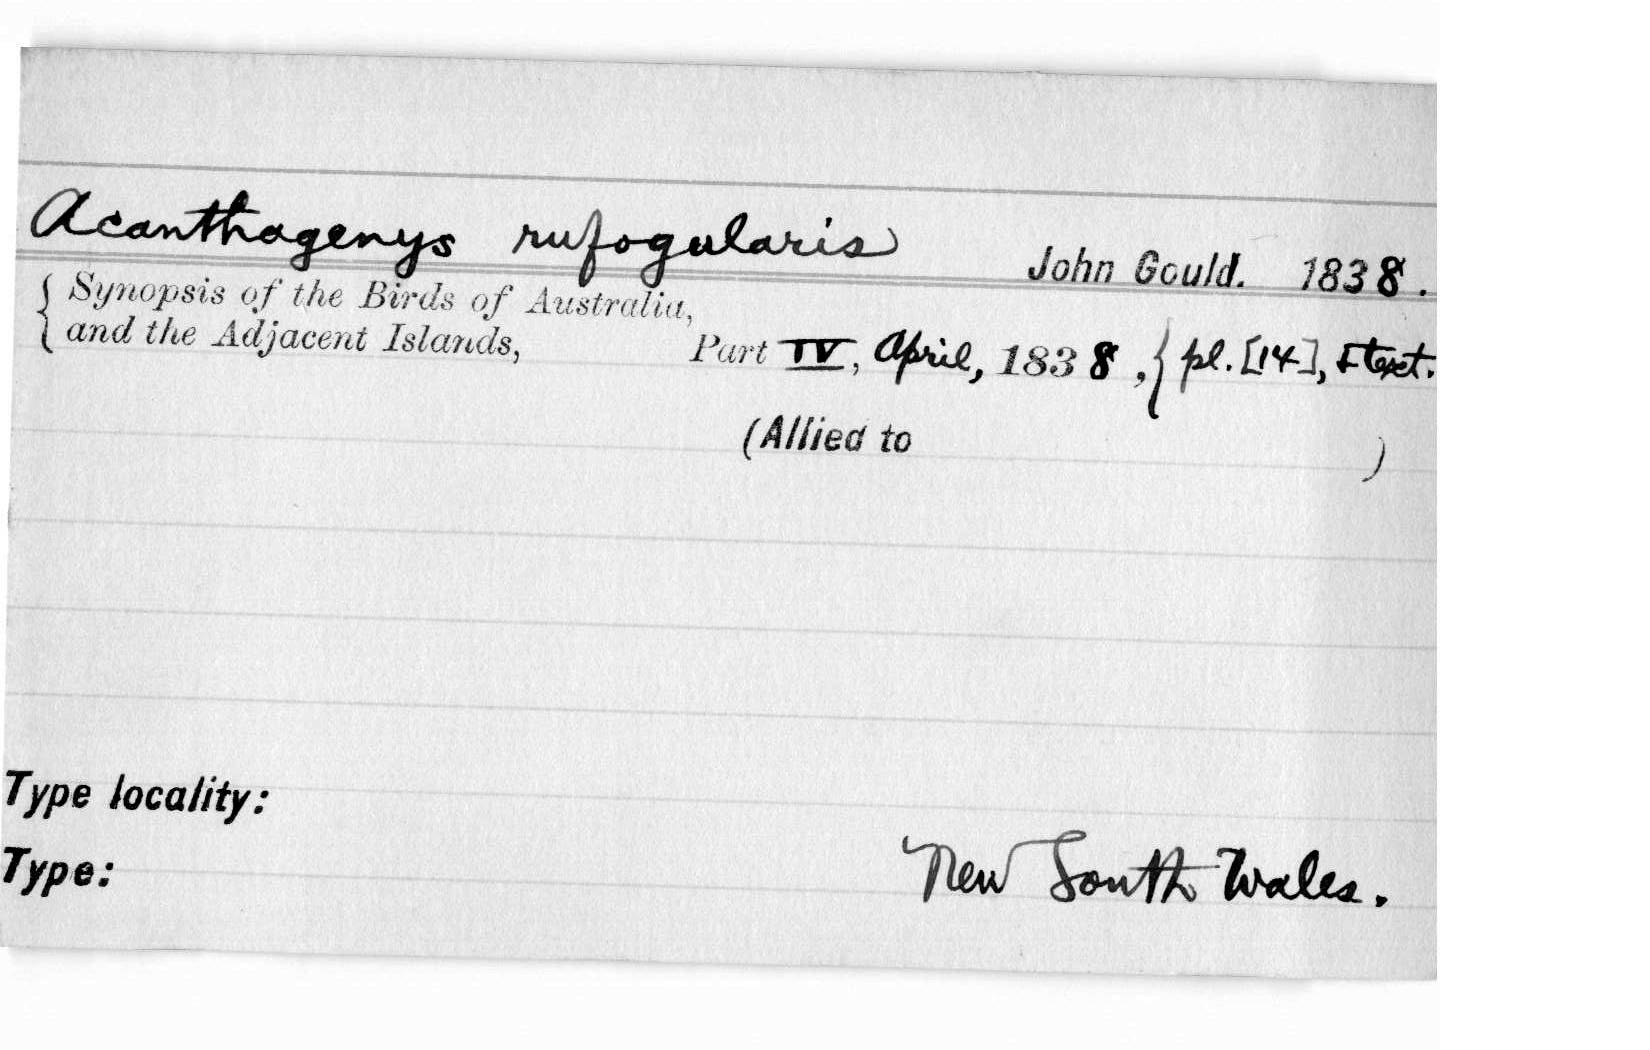 Acanthagenys rufogularis John Gould. 1838.
{ Synopsis of the Birds of Australia,
and the Adjacent Islands, Part IV, April, 1838, { pl. [14], & text.
(Allied to )
Type locality:
Type: New South Wales.